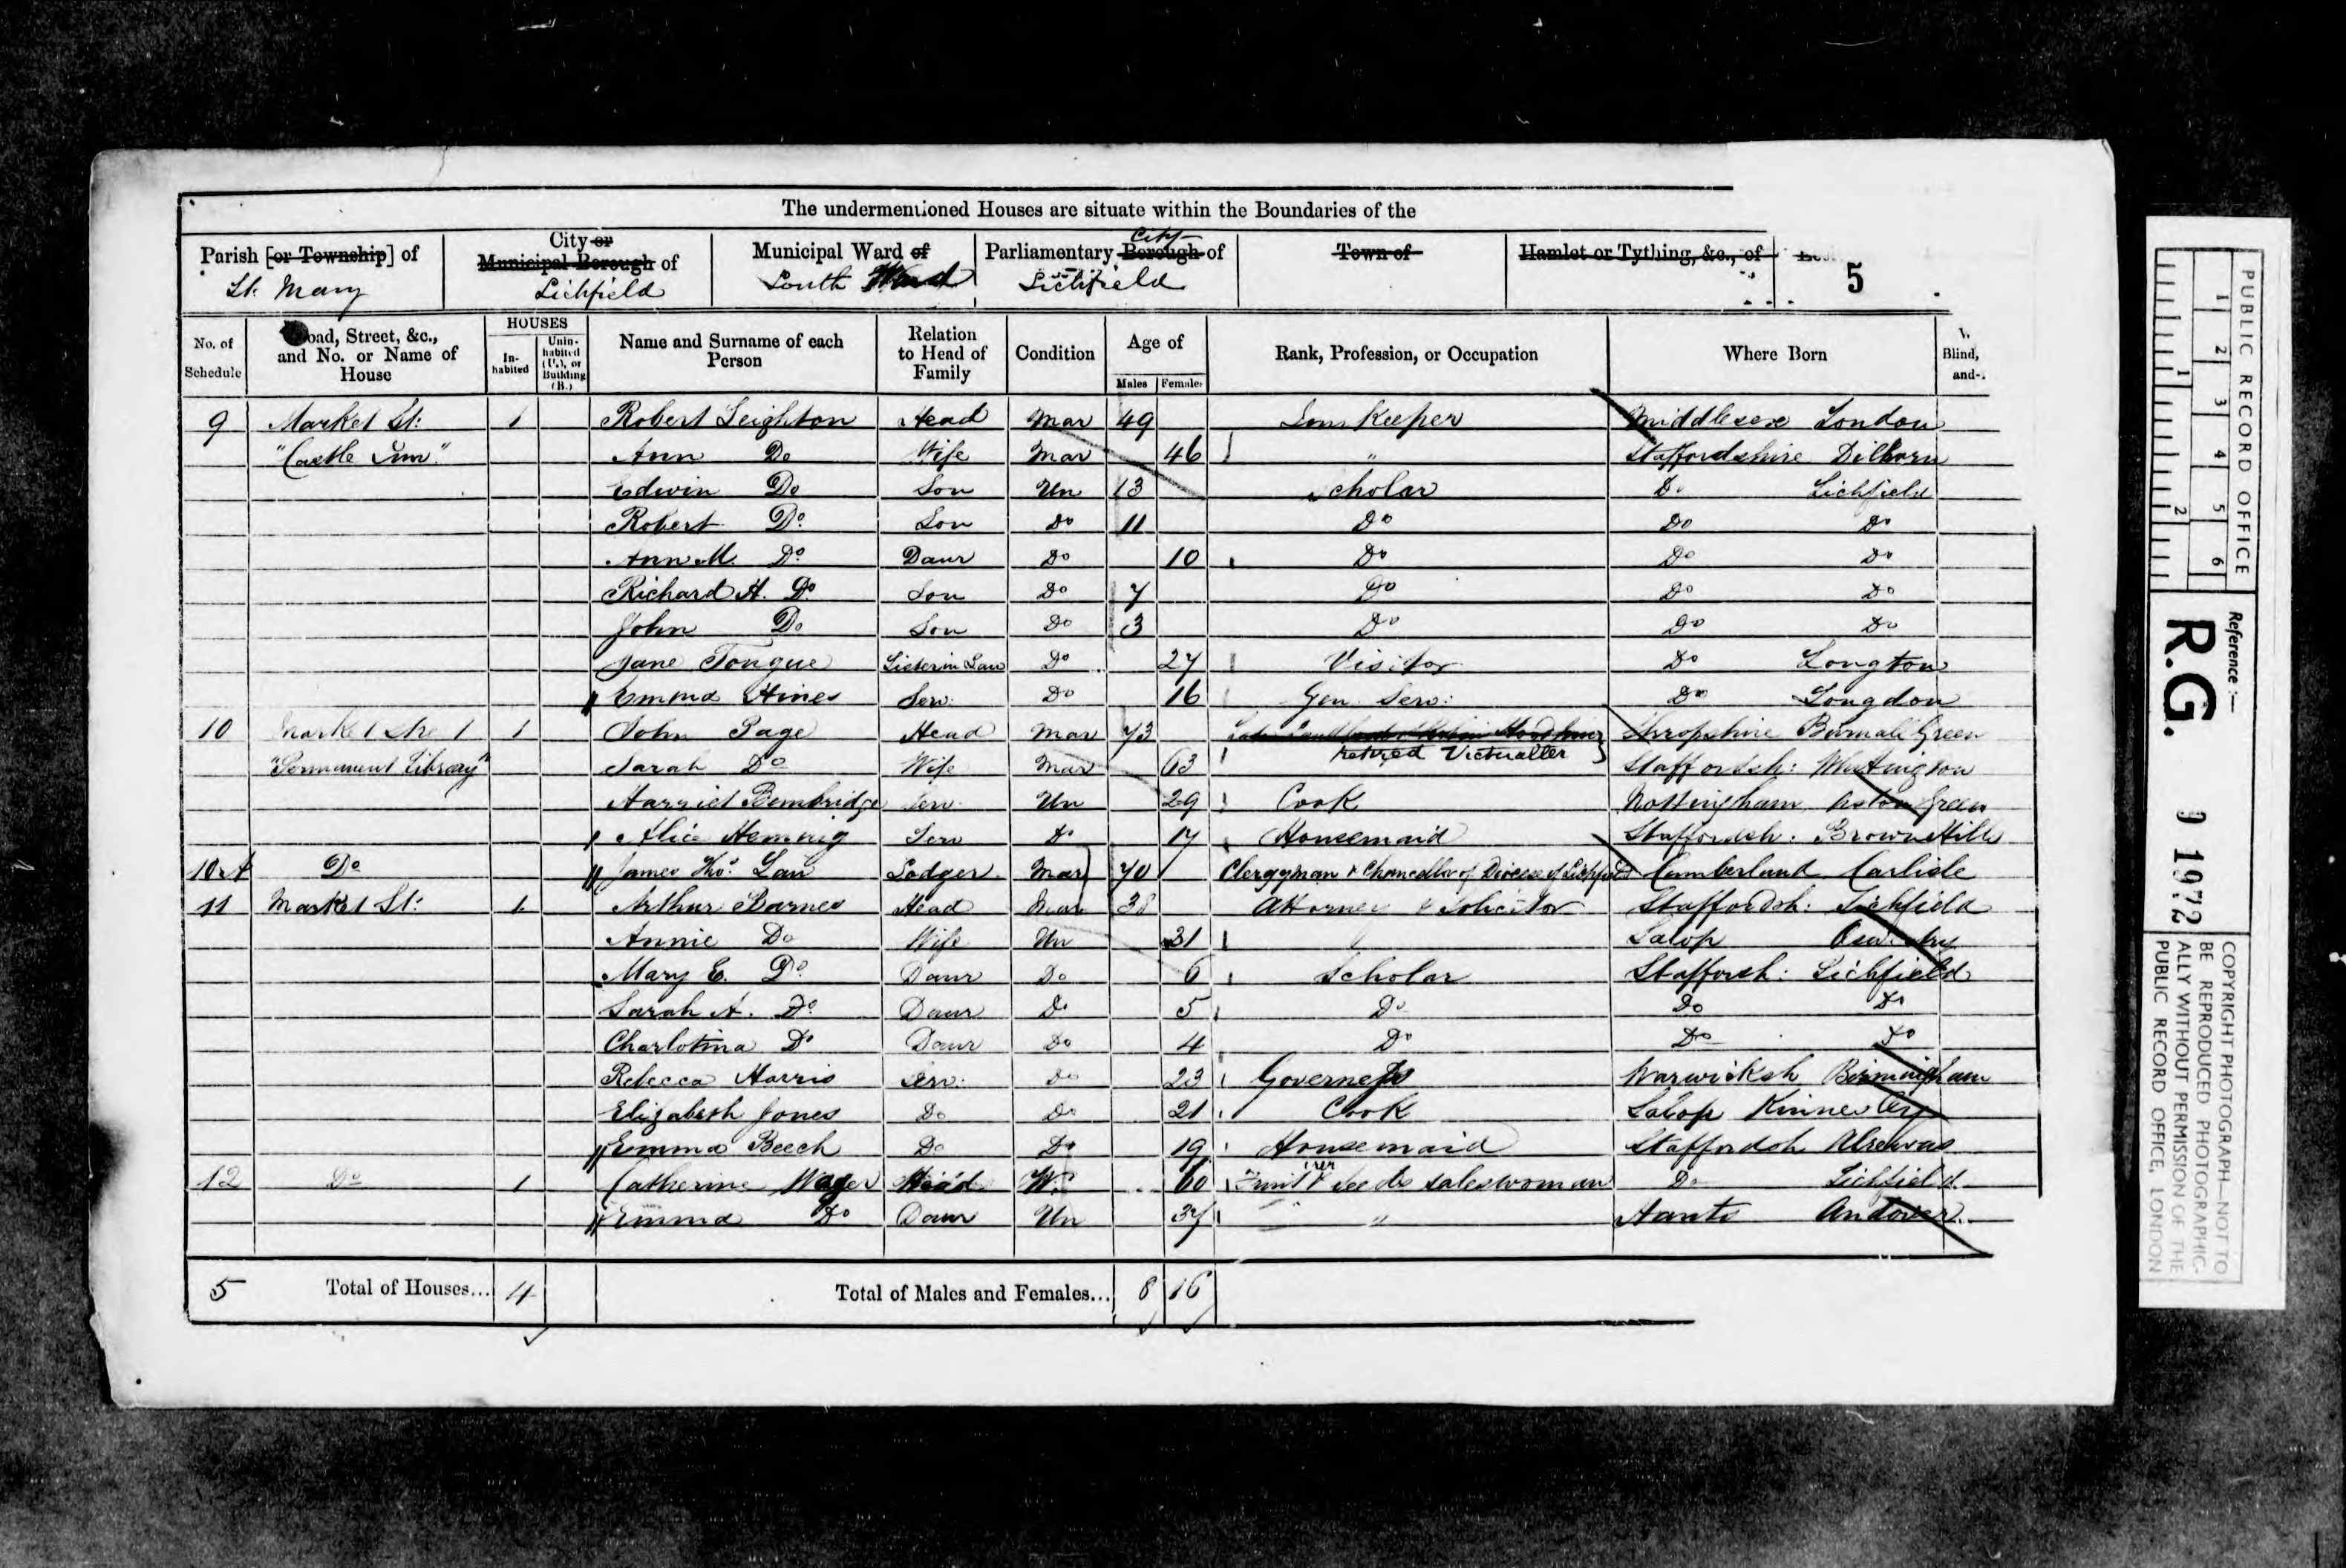 The undermentioned Houses are situate within the Boundaries of the
Parish [or Township] of
St. Mary
City or
Municipal Borough of
Lichfield
Municipal Ward of
South Ward
City
Parliamentary Borough of
Lichfield
Town of
Hamlet or Tything, &c., of
5
No. of Schedule
Road, Street, &c., and No. or Name of House
HOUSES
In-habited
Unin-habited (U.), or Building (B.)
Name and Surname of each Person
Relation to Head of Family
Condition
Age of
Males
Females
Rank, Profession, or Occupation
Where Born
Blind,
and-
9 Market St: 1 Robert Leighton Head Mar 49 Inn Keeper Middlesex London
"Castle Inn" Ann Do Wife Mar 46 " Staffordshire Dilhorn
Edwin Do Son Un 13 Scholar Do Lichfield
Robert Do Son Do 11 Do Do Do
Ann M. Do Daur Do 10 Do Do Do
Richard H. Do Son Do 7 Do Do Do
John Do Son Do 3 Do Do Do
Jane Tongue Sister in Law Do 27 Visitor Do Longton
Emma Hines Serv: Do 16 Gen Serv: Do Longdon
10 Market Stre t 1 John Page Head Mar 73 Shropshire Green
retired Victualler
"Permanent Library" Sarah Do Wife Mar 63 Staffordsh: Whittington
Harriet Bembridge Serv Un 29 Cook Nottingham Green
Alice Hemmig Serv Do 17 Housemaid Staffordsh: Brown Hills
10A Do James Thos: Law Lodger Mar 70 Clergyman & Chancellor of Diocese of Lichfield Cumberland Carlisle
11 Market St: 1 Arthur Barnes Head Mar 38 Attorney & Solicitor Staffordsh: Lichfield
Annie Do Wife Un 31 Salop Oswestry
Mary E. Do Daur Do 6 Scholar Staffordsh: Lichfield
Sarah A. Do Daur Do 5 Do Do Do
Charlotina Do Daur Do 4 Do Do Do
Rebecca Harris Serv: Do 23 Governess Warwicksh Birmingham
Elizabeth Jones Do Do 21 Cook Salop Kinnerley
Emma Beech Do Do 19 Housemaid Staffordsh Alrewas
12 Do 1 Catherine Wager Head W. 60 Fruit & Seeds saleswoman Do Lichfield
Emma Do Daur Un 37 " Hants Andover
5 Total of Houses... 4 Total of Males and Females... 8 16
PUBLIC RECORD OFFICE
1 2 3 4 5 6
1 2
Reference:—
R.G. 9 1972
COPYRIGHT PHOTOGRAPH—NOT TO
BE REPRODUCED PHOTOGRAPHIC-
ALLY WITHOUT PERMISSION OF THE
PUBLIC RECORD OFFICE, LONDON